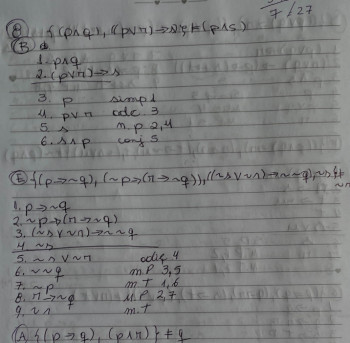 7/27
{(p∧q), ((p∨n)→s)} ⊨ (p∧s)
(B)
1. p∧q
2. (p∨n)→s
3. p simp 1
4. p∨n adc. 3
5. s m.p 2,4
6. s∧p conj 5
(E) {(p→~q), (~p→(n→~q)), ((~s∨~n)→~~q), ~s} ⊨ ~n
1. p→~q
2. ~p→(n→~q)
3. (~s∨~n)→~~q
4. ~s
5. ~s∨~n adiç 4
6. ~~q m.P 3,5
7. ~p m.T 1,6
8. n→~q M.P 2,7
9. ~n m.T
(A) {(p→q), (p∧n)} ⊨ q